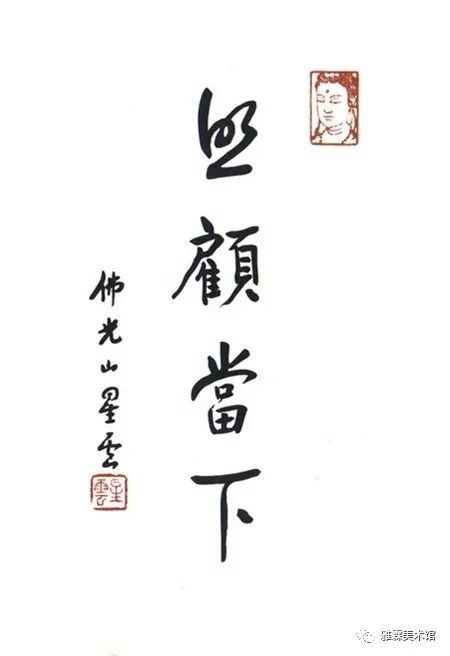 照顧當下
佛光山星雲
星雲
雅霖美术馆